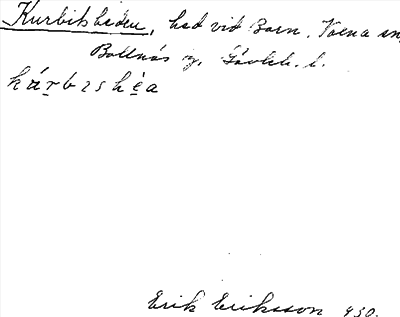 Kurbitsheden, hed vid Born, Voxna sn,
Bollnäs sg, Gävleb. l.
kárbɪshèa
Erik Eriksson 930.